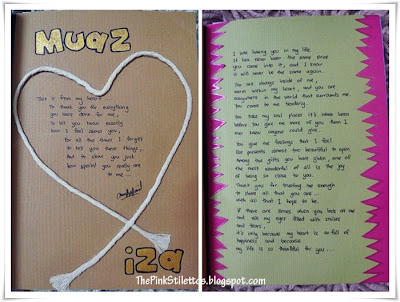 Muaz
This is from my heart
To thank you for everything
you have done for me,
To let you know exactly
how I feel about you,
for all the times I forget
to tell you these things,
And to show you just
how special you really are
to me ...
iza
I love having you in my life.
It has never been the same since
you came into it, and I know
it will never be the same again...
You are always beside me,
warm within my heart, and you are
everywhere in the world that surrounds me.
You came to me tenderly.
You take my soul places it's never been
before. You give me more of you than I
ever knew anyone could give.
You give me feelings that I feel
like presents almost too beautiful to open.
Among the gifts you have given, one of
the most wonderful of all is the joy
of being so close to you.
Thank you for trusting me enough
to share all that you are ...
with all that I hope to be.
If there are times when you look at me
and see my eyes filled with smiles
and tears,
it's only because my heart is so full of
happiness and because
my life is so thankful for you...
ThePinkStilettos.blogspot.com